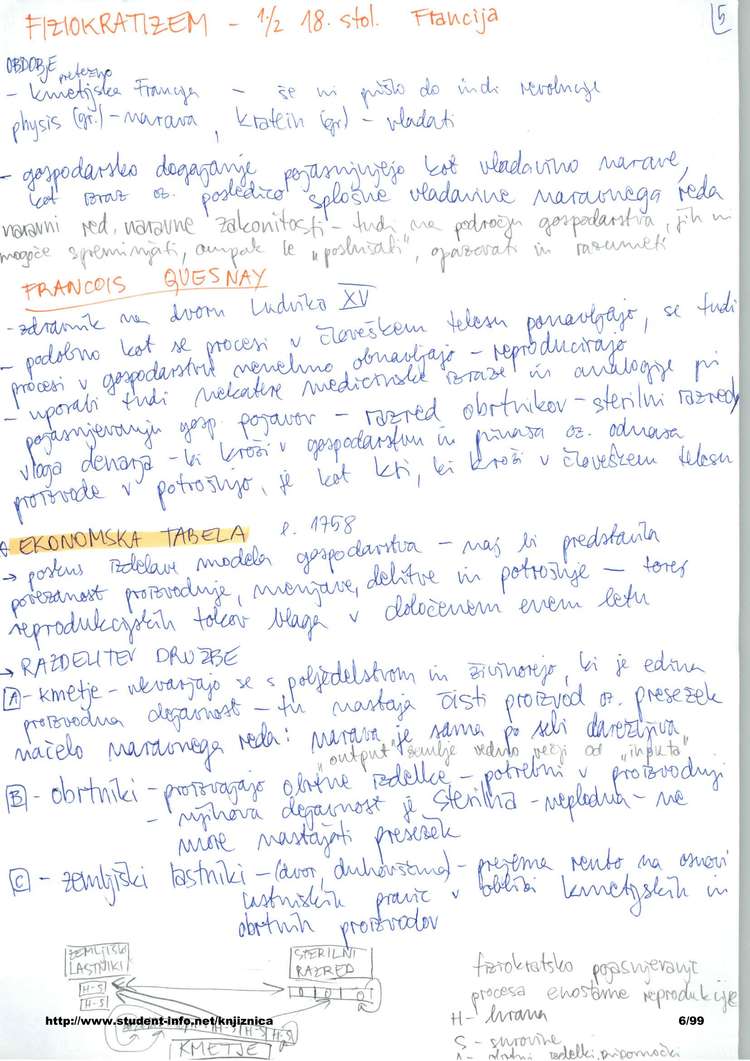 FIZIOKRATIZEM - 1/2 18. stol. Francija
5
OBDOBJE
pretežno
- kmetijska Francija - še ni prišlo do indi revolucije
physis (gr.) - narava, kratein (gr) - vladati
- gospodarsko dogajanje pojasnjujejo kot vladavino narave,
kot izraz oz. posledico splošne vladavine naravnega reda
naravni red, naravne zakonitosti - tudi na področju gospodarstva, jih ni
mogoče spreminjati, ampak le "poslušati", opazovati in razumeti
FRANCOIS QUESNAY
- zdravnik na dvoru Ludvika XV
- podobno kot se procesi v človeškem telesu ponavljajo, se tudi
procesi v gospodarstvu nenehno obnavljajo - reproducirajo
- uporabi tudi nekatere medicinske izraze in analogije pri
pojasnjevanju gosp. pojavov - razred obrtnikov - sterilni razred
vloga denarja - ki kroži v gospodarstvu in prinaša oz. odnaša
proizvode v potrošnjo, je kot kri, ki kroži v človeškem telesu
EKONOMSKA TABELA l. 1758
→ poskus izdelave modela gospodarstva - naj bi predstavila
povezanost proizvodnje, menjave, delitve in potrošnje - torej
reprodukcijskih tokov blaga v določenem enem letu
→ RAZDELITEV DRUŽBE
A - kmetje - ukvarjajo se s poljedelstvom in živinorejo, ki je edina
proizvodna dejavnost - tu nastaja čisti proizvod oz. presežek
načelo naravnega reda: narava je sama po sebi darežljiva
"output" zemlje vedno večji od "inputa"
B - obrtniki - proizvajajo obrtne izdelke - potrebni v proizvodnji
- njihova dejavnost je sterilna - neplodna - ne
more nastajati presežek
C - zemljiški lastniki - (dvor, duhovščina) - prejema rento na osnovi
lastniških pravic v obliki kmetijskih in
obrtnih proizvodov
ZEMLJIŠKI
LASTNIKI
H-S
H-S
STERILNI
RAZRED
H-S H-S H-S
KMETJE
fiziokratsko pojasnjevanje
procesa enostavne reprodukcije
http://www.student-info.net/knjiznica
6/99
H - hrana
S - surovine
izdelki, pripomočki